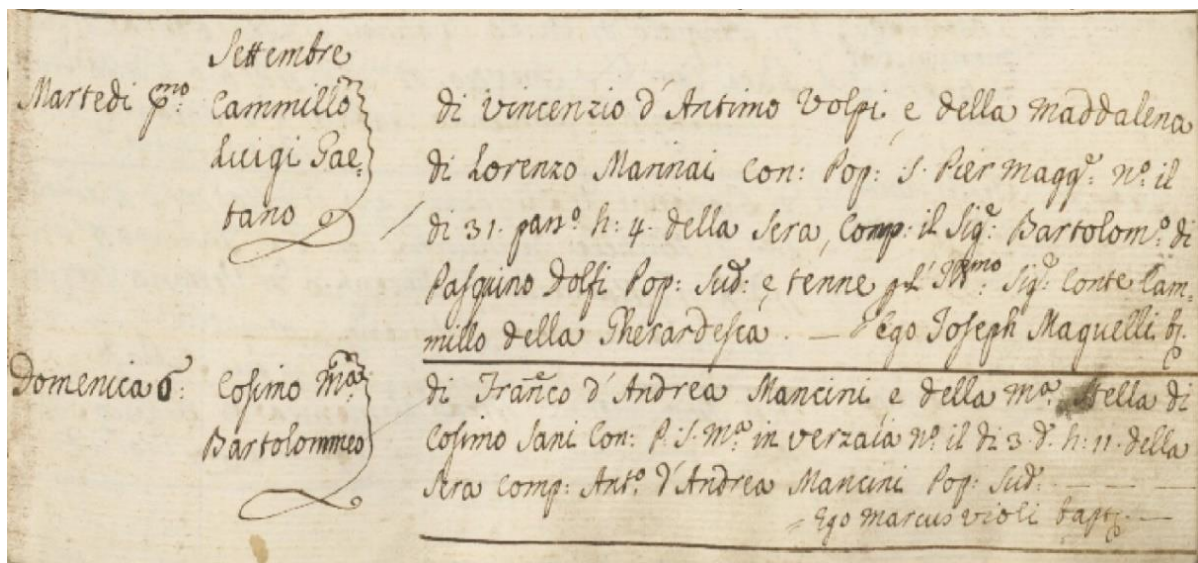 Settembre
Martedi p.mo Cammillo di Vincenzio d'Antimo Volpi, e della Maddalena
Luigi Gae= di Lorenzo Marinai Con: Pop: S. Pier Magg.e: n.o il
tano di 31. pas.o h: 4. della Sera, Comp: il Sig.e: Bartolom.o: di
Pasquino Dolfi Pop: Sud: e tenne p l' Ill.mo: Sig.e: Conte Cam=
millo della Gherardesca. — Ego Joseph Maguelli b.
Domenica 6: Cosimo M.a di Franco d'Andrea Mancini e della M.a: Stella di
Bartolommeo Cosimo Sani Con: P. S. M.a in Verzaia n.o il di 3 d.o h: 11. della
Sera Comp: Ant.o d'Andrea Mancini Pop: Sud:
= Ego Marcus Violi bapt.